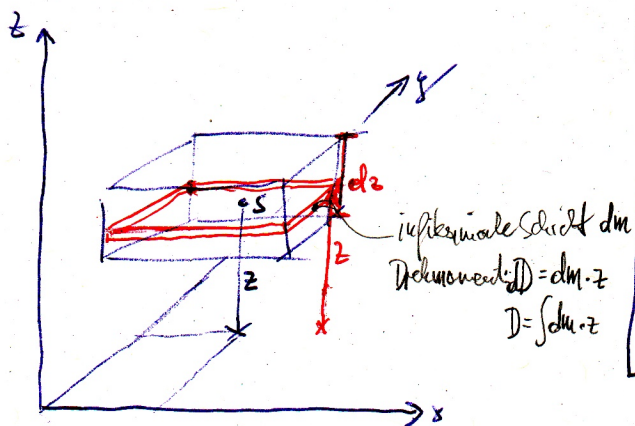 z
y
dz
S
infinitesimale Schicht dm
z
z
Drehmoment: dD = dm·z
D = ∫dm·z
x